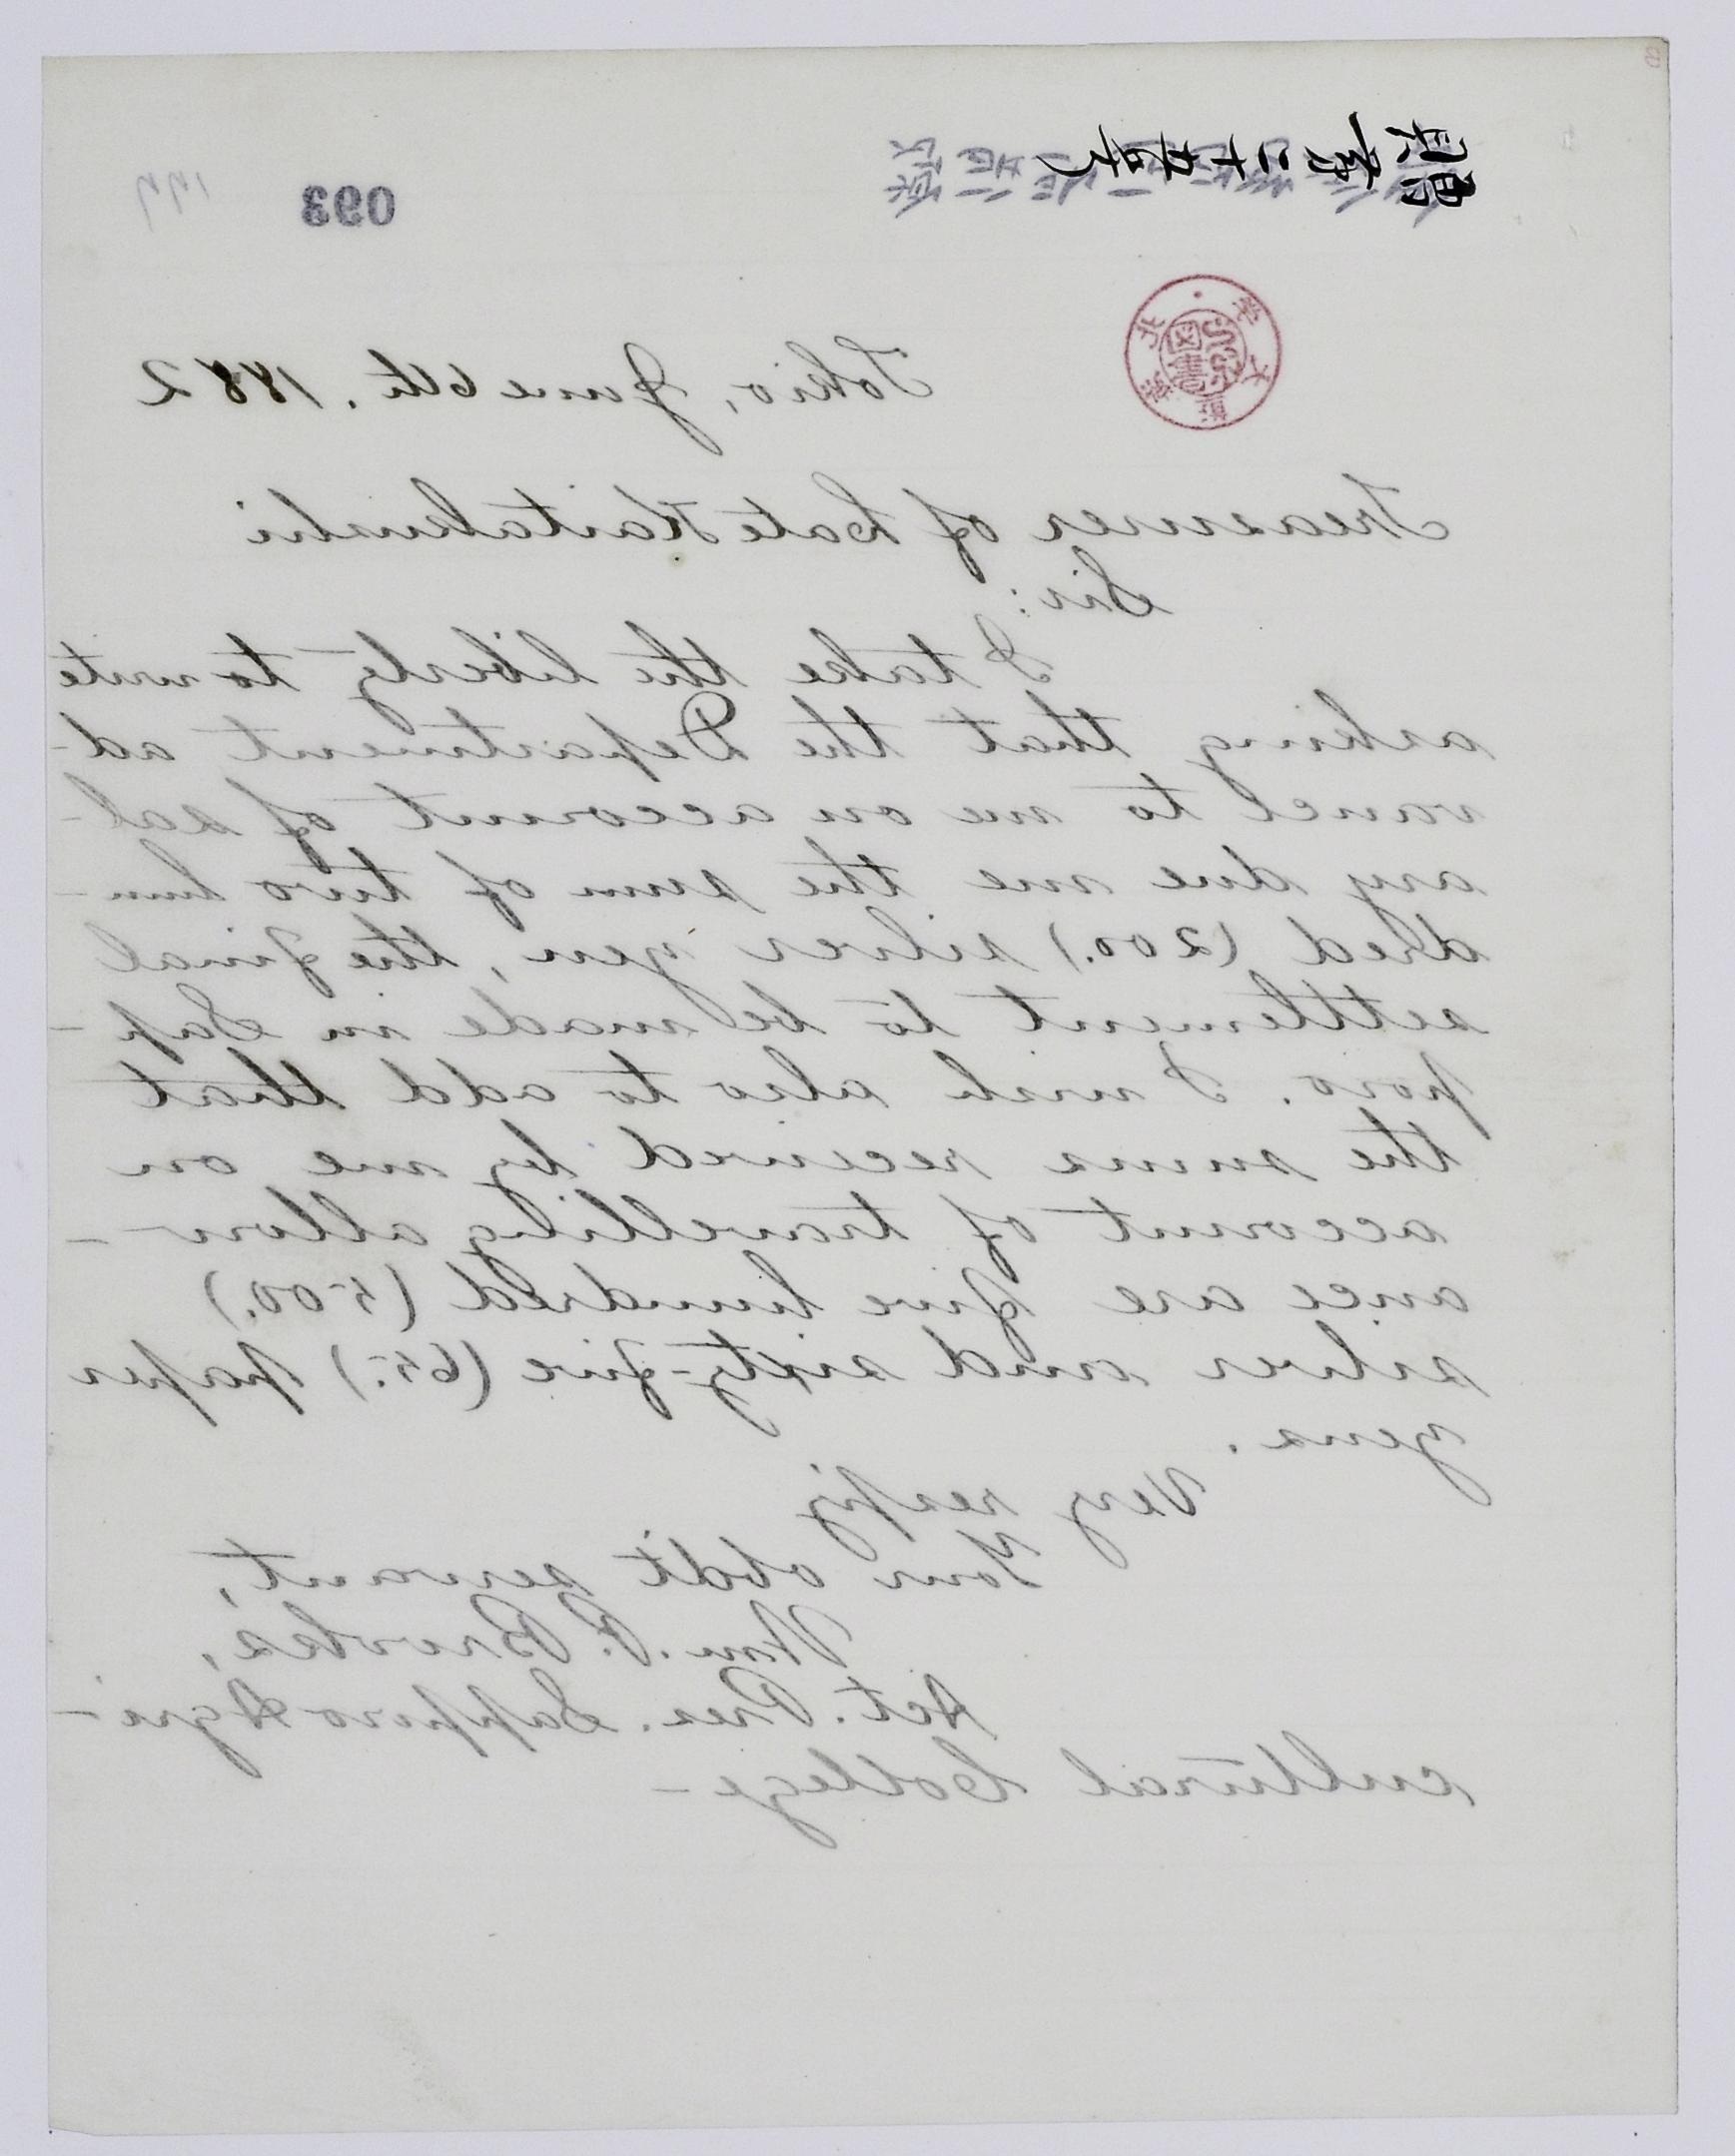 093
Tokio, June 6th. 1882
Treasurer of Late Kaitakushi
Sir:
I take the liberty to write
asking that the Department ad-
vance to me on account of sal-
ary due me the sum of two hun-
dred (200.) silver yen, the final
settlement to be made in Sap-
poro. I wish also to add that
the sums received by me on
account of travelling allow-
ance are five hundred (500.)
silver and sixty-five (65.) paper
yens.
Very respy
Your obdt servant,
Wm. P. Brooks,
Act. Pres. Sapporo Agri-
cultural College-